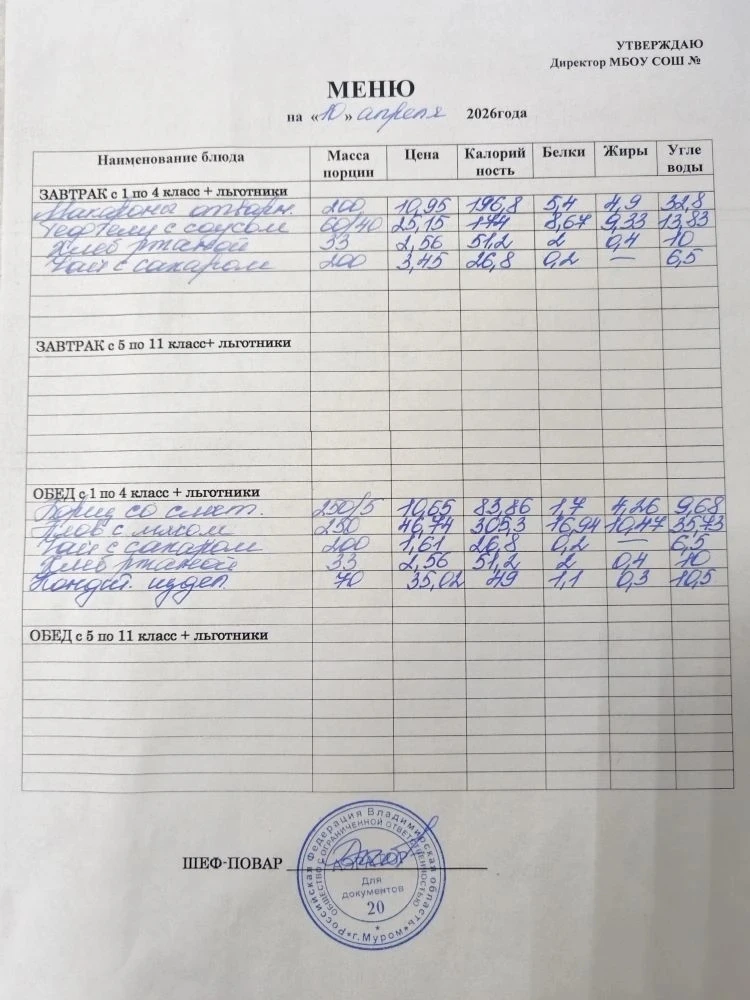 УТВЕРЖДАЮ
Директор МБОУ СОШ №
МЕНЮ
на «10» апреля 2026года
Наименование блюда Масса порции Цена Калорий ность Белки Жиры Угле воды
ЗАВТРАК с 1 по 4 класс + льготники
Макароны отварн. 200 10,95 196,8 5,4 4,9 32,8
Тефтели с соусом 60/40 25,15 174 8,67 9,33 13,83
Хлеб ржаной 33 2,56 51,2 2 0,4 10
Чай с сахаром 200 3,45 26,8 0,2 — 6,5
ЗАВТРАК с 5 по 11 класс+ льготники
ОБЕД с 1 по 4 класс + льготники
Борщ со смет. 250/5 10,65 83,86 1,7 4,26 9,68
Плов с мясом 250 46,74 305,3 16,94 10,47 35,73
Чай с сахаром 200 1,61 26,8 0,2 — 6,5
Хлеб ржаной 33 2,56 51,2 2 0,4 10
Кондит. издел. 70 35,02 49 1,1 0,3 10,5
ОБЕД с 5 по 11 класс + льготники
ШЕФ-ПОВАР
Российская Федерация Владимирская область
г.Муром
ОБЩЕСТВО С ОГРАНИЧЕННОЙ ОТВЕТСТВЕННОСТЬЮ
Для
документов
20